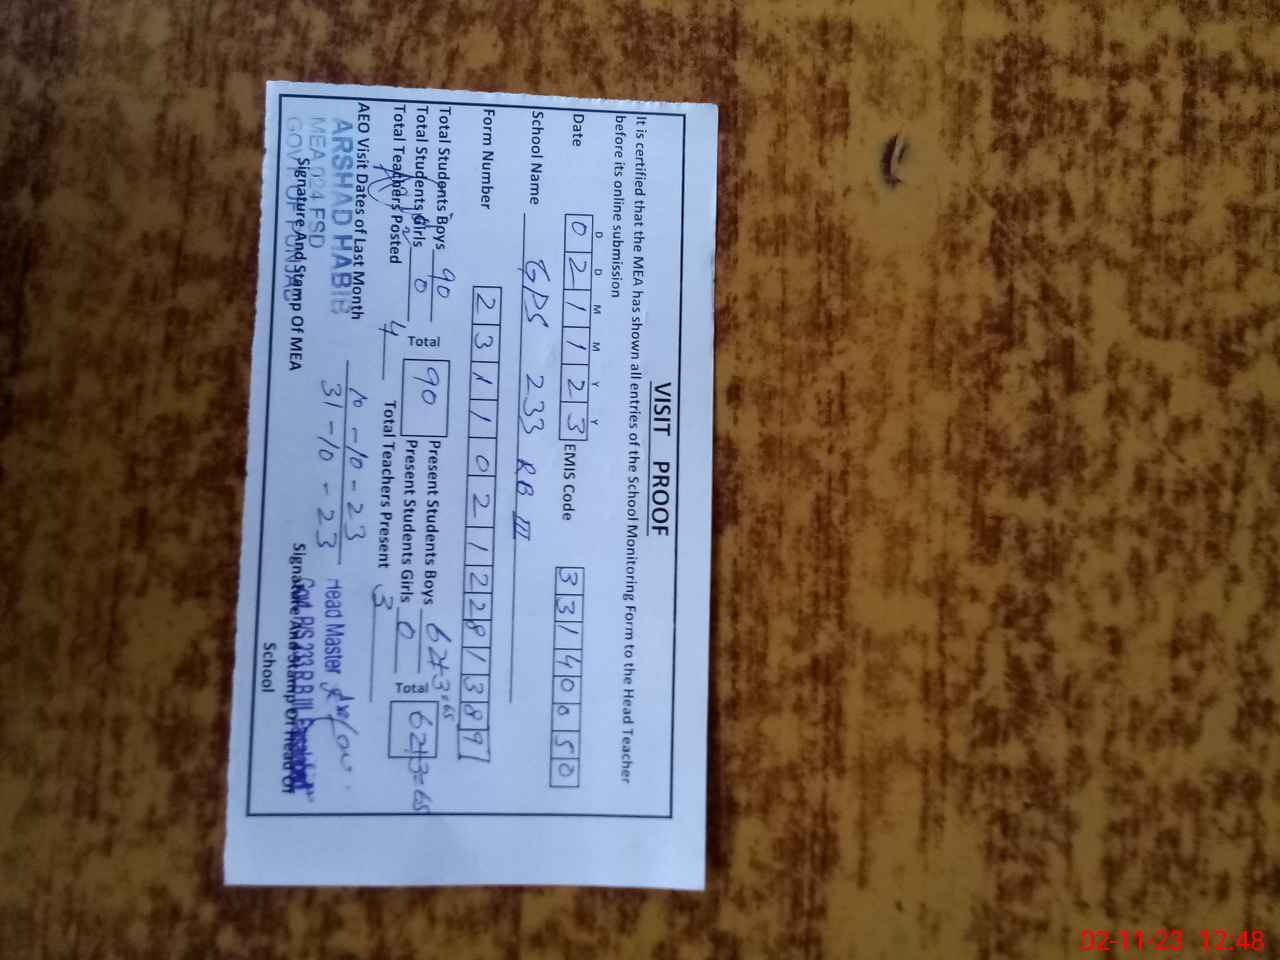 VISIT PROOF
It is certified that the MEA has shown all entries of the School Monitoring Form to the Head Teacher
before its online submission
D D M M Y Y
Date 0 2 1 1 2 3 EMIS Code 3 3 1 4 0 0 5 0
School Name GPS 233 RB III
Form Number 2 3 1 1 0 2 1 2 2 8 1 3 8 9
Total Students Boys 90 Total 90 Present Students Boys 62+3=65 Total 62+3=65
Total Students Girls 0 Present Students Girls 0
Total Teachers Posted 4 Total Teachers Present 3
AEO Visit Dates of Last Month 10-10-23
31-10-23
ARSHAD HABIB
MEA 024 FSD
GOVT OF PUNJAB
Signature And Stamp Of MEA
Head Master
Govt. P.S 233 R.B III
Signature And Stamp Of Head Of
School
02-11-23 12:48